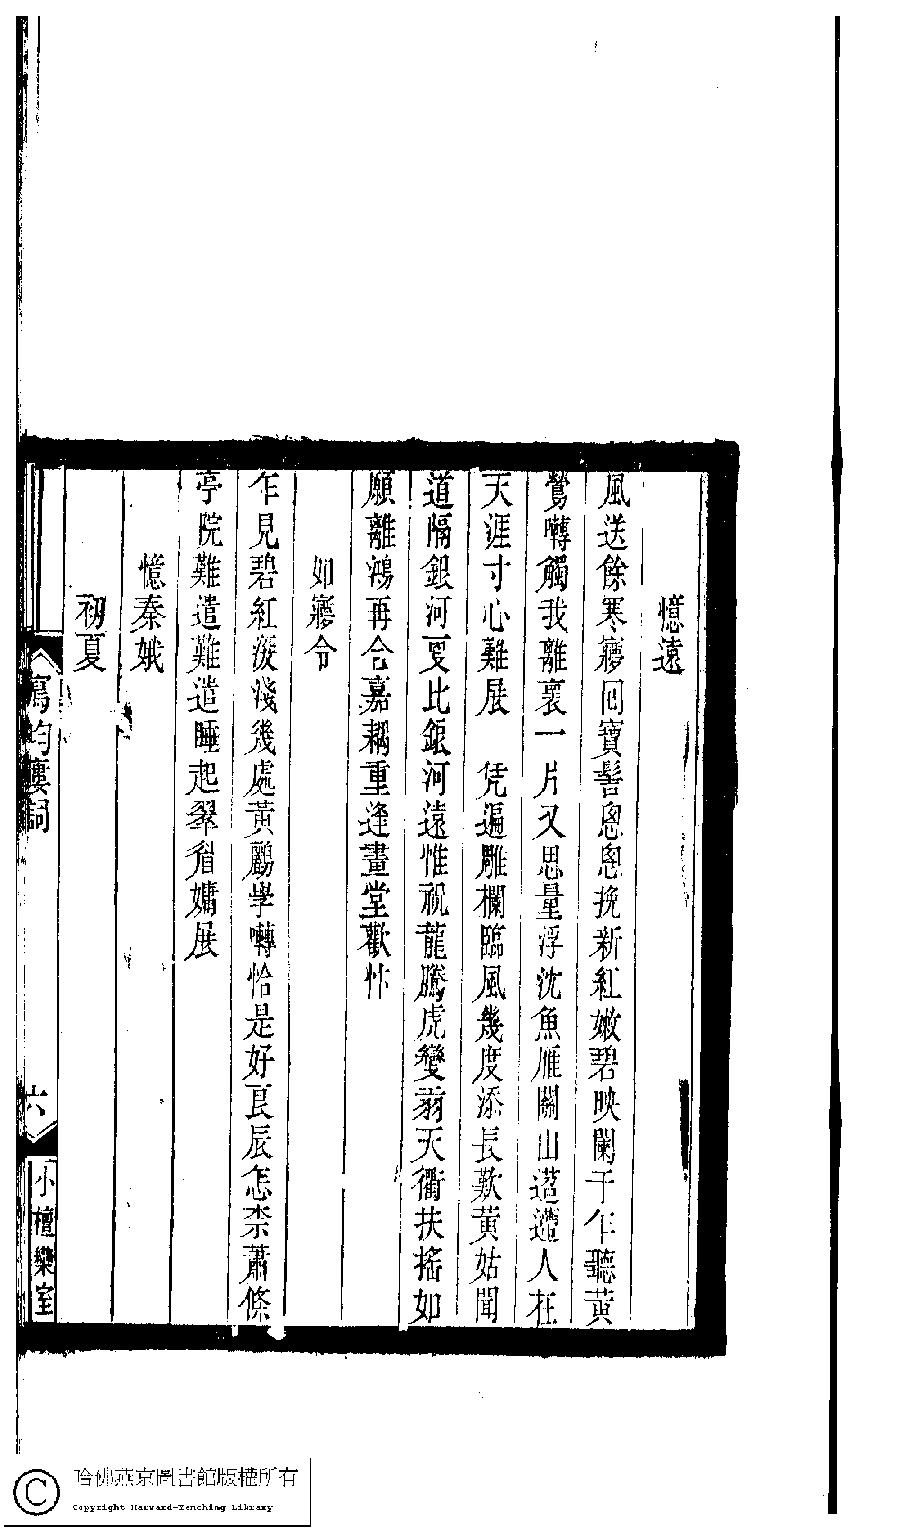 憶遠
風送餘寒㝱回寶髻悤悤挽新紅嫩碧映闌干乍聽黃
鶯囀觸我離裏一片又思量浮沈魚雁關山迢遞人在
天涯寸心難展　凭遍雕欄臨風幾度添長歎黃姑聞
道隔銀河更比銀河遠惟祝龍騰虎變翦天衢扶搖如
願離鴻再合嘉耦重逢畫堂歡忭
如㝱令
乍見碧紅深淺幾處黃鸝學囀恰是好良辰怎柰蕭條
亭院難遣難遣睡起翠眉慵展
憶秦娥
初夏
寫均廔詞
六
小檀欒室
哈佛燕京圖書館版權所有
Copyright Harvard-Yenching Library